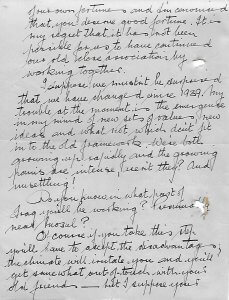 of our own fortunes and I'm convinced
that you deserve good fortune. It is
my regret that it has not been
possible for us to have continued
our old close association by
working together.
I suppose we mustn't be surprised
that we have changed since 1929. My
trouble at the moment is the emergence
in my mind of new set of values, new
ideas and what not which don't fit
in to the old framework. We're both
growing up rapidly and the growing
pains are intense, aren't they? And
unsettling!
Do you know in what part of
Iraq you'll be working?
near Mosul?
Of course if you take this step
you'll have to accept the disadvantages
the climate will irritate you and you'll
get somewhat out of touch with your
old friends — but I suppose you